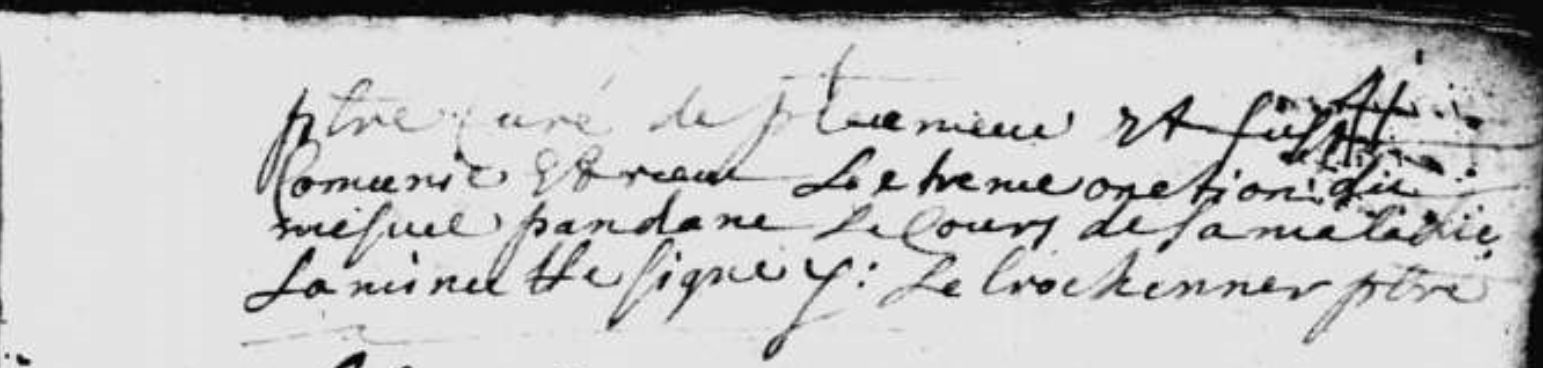 ptre curé de ploumeur et fust
Comunié Et receu Lextreme onction du
mesme pandant Le Cours de sa maladie
La minutte signé y: Le Crockenner ptre